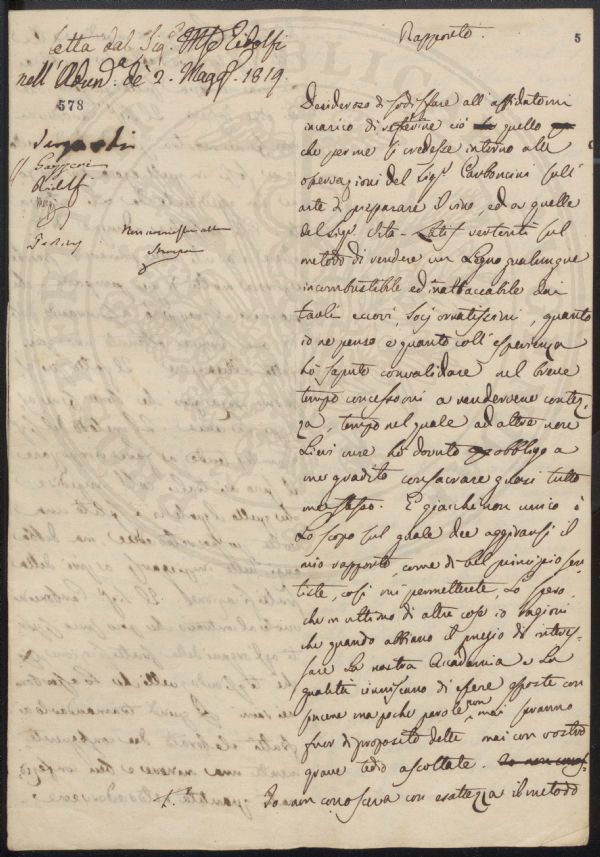 Letta dal Sig.r M.se Ridolfi
nell'Adun.a de' 2. Magg.o 1819.
578
Rapporto.
5
Gazzeri
Ridolfi
Desideroso di sodisfare all'affidatomi
incarico di riferirne ciò quello
che per me si credesse intorno alle
osservazioni del Sig.r Carboncini sull'
arte di preparare il vino, ed a quelle
del Sig.r Vita-Latis vertenti sul
metodo di rendere un Legno qualunque
incombustibile ed inattaccabile dai
tarli eccovi, socj ornatissimi, quanto
io ne penso e quanto coll'esperienza
hò saputo convalidare nel breve
tempo concessomi a rendervene contez-
za, tempo nel quale ad altre non
Lievi cure hò dovuto obbligo a
me gradito consacrare quasi tutto
me stesso. E giacchè non unico è
Lo scopo sul quale dee aggirarsi il
mio rapporto, come di bel principio sen-
tiste, così mi permetterete, Lo spero,
che in ultimo di altre cose io ragioni
che quando abbiano il pregio di interes-
sare La nostra Accademia e La
qualità riuniscano di essere esposte con
succose ma poche parole non mai saranno
fuor di proposito dette mai con vostro
grave tedio ascoltate. Io non conos-
Io non conosceva con esattezza il metodo